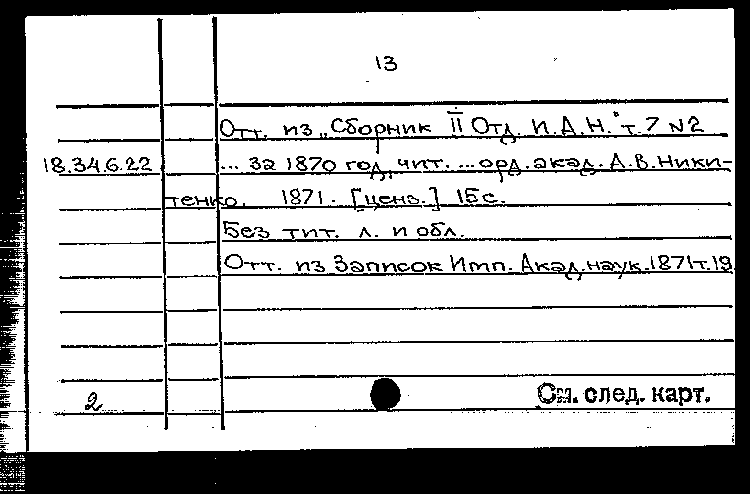 13
Отт. из „Сборник II Отд. И.А.Н." т. 7 №2
18.346.22 ... за 1870 год, чит. ... орд. акад. А.В. Ники-
тенко. 1871. [ценз.] 15 с.
Без тит. л. и обл.
Отт. из Записок Имп. Акад. наук. 1871 т. 19
2 См. след. карт.